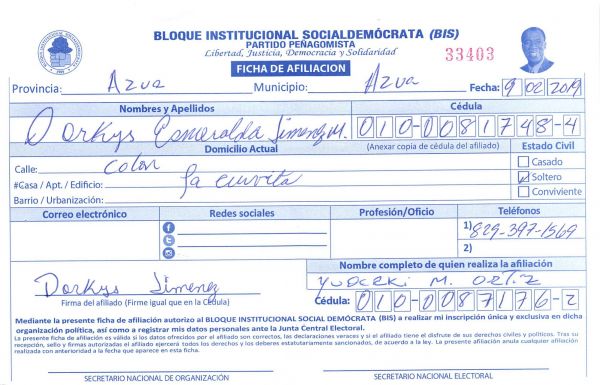 BLOQUE INSTITUCIONAL SOCIALDEMÓCRATA (BIS)
PARTIDO PEÑAGOMISTA
Libertad, Justicia, Democracia y Solidaridad
33403
FICHA DE AFILIACION
Provincia: Azua Municipio: Azua Fecha: 9/02/2019
Nombres y Apellidos Cédula
Dorkys Esmeralda Jimenez M. 010-0081748-4
Domicilio Actual (Anexar copia de cédula del afiliado) Estado Civil
Calle: Colon Casado
#Casa / Apt. / Edificio: La curvita Soltero
Barrio / Urbanización: Conviviente
Correo electrónico Redes sociales Profesión/Oficio Teléfonos
1) 829-397-1569
2)
Nombre completo de quien realiza la afiliación
Dorkys Jimenez M. Ortiz
Firma del afiliado (Firme igual que en la Cédula) Cédula: 010-0087176-2
Mediante la presente ficha de afiliación autorizo al BLOQUE INSTITUCIONAL SOCIAL DEMÓCRATA (BIS) a realizar mi inscripción única y exclusiva en dicha
organización política, así como a registrar mis datos personales ante la Junta Central Electoral.
La presente ficha de afiliación es válida si los datos ofrecidos por el afiliado son correctos, las declaraciones veraces y si el afiliado tiene el disfrute de sus derechos civiles y políticos. Tras su
recepción, sello y firmas autorizadas el afiliado ejercerá todos los derechos y los deberes estatutariamente sancionados, de acuerdo a la ley. La presente afiliación anula cualquier afiliación
realizada con anterioridad a la fecha que aparece en esta ficha.
SECRETARIO NACIONAL DE ORGANIZACIÓN SECRETARIO NACIONAL ELECTORAL